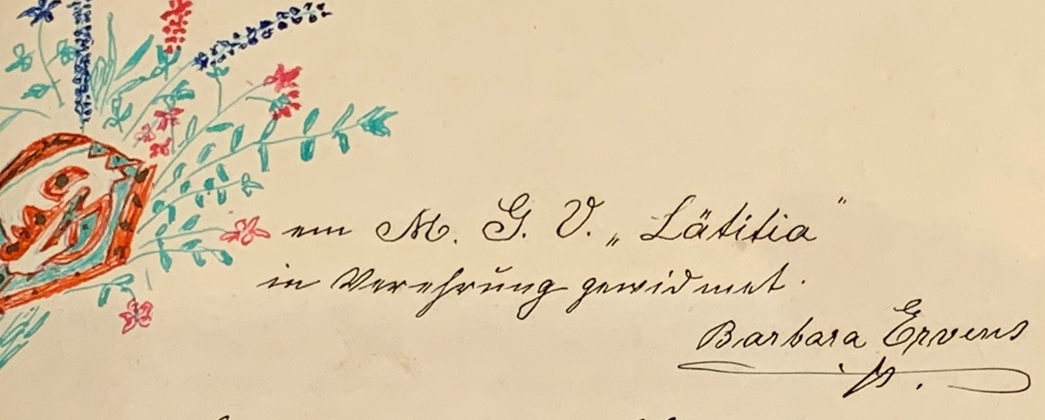 em M. G. V. „Lätitia"
in Verehrung gewidmet.
Barbara Ervens